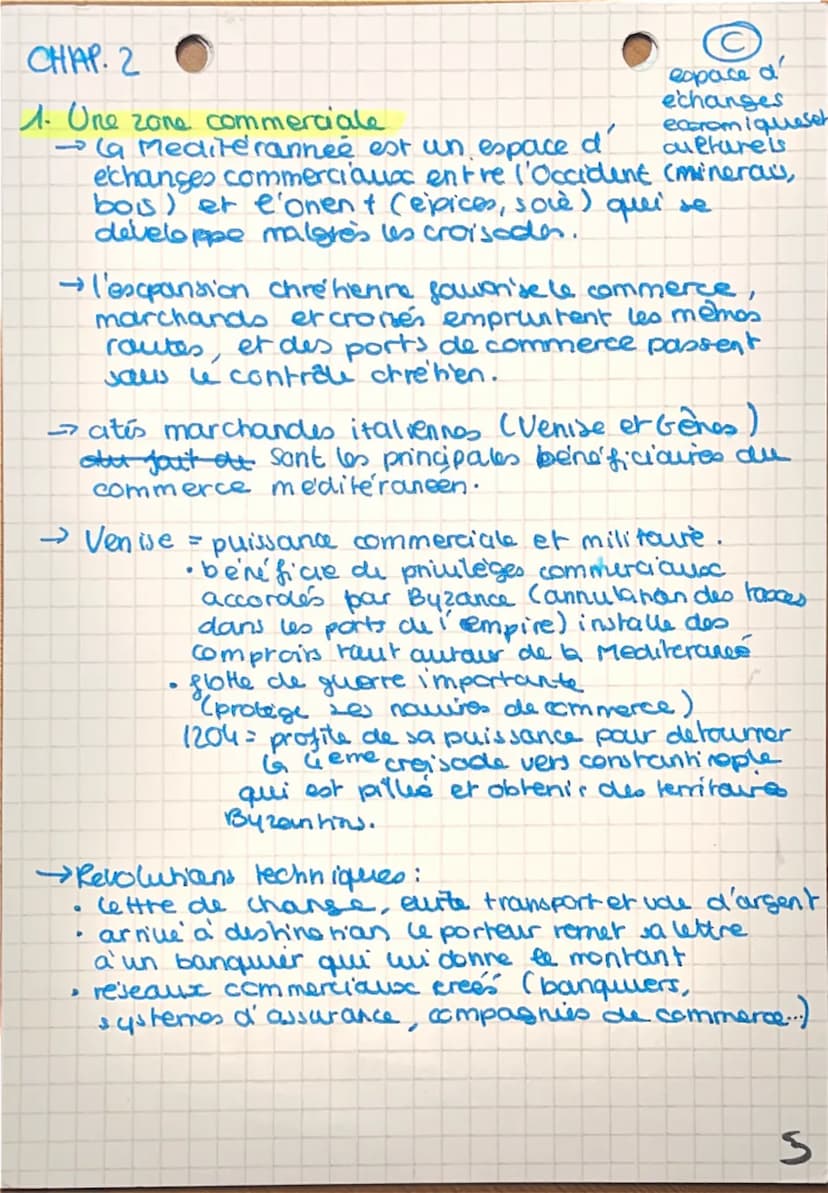 CHAP. 2
C
espace d'
échanges
economiques et
culturels
1. Une zone commerciale
→ La Meditérannée est un espace d'
échanges commerciaux entre l'Occident (minerais,
bois) et l'orient (épices, soie) qui se
développe malgrès les croisades.
→ l'expansion chrétienne favorise le commerce,
marchands et croisés empruntent les mêmes
routes, et des ports de commerce passent
sous le contrôle chrétien.
→ cités marchandes italiennes (Venise et Gênes)
du fait de sont les principales bénéficiaires du
commerce mediteranéen.
→ Venise = puissance commerciale et militaire.
• bénéficie de privilèges commerciaux
accordés par Byzance (annulation des taxes
dans les ports de l'empire) installe des
comptoirs tout autour de la Mediteranée
• flotte de guerre importante
(protège ses navires de commerce)
1204 = profite de sa puissance pour détourner
la 4eme croisade vers constantinople
qui est pillée et obtenir des territoires
Byzantins.
→ Revolutions techniques :
• lettre de change, evite transport et vole d'argent
• arrivé à destination le porteur remet sa lettre
à un banquier qui lui donne le montant
• réseaux commerciaux creés (banquiers,
systemes d'assurance, compagnies de commerce...)
5